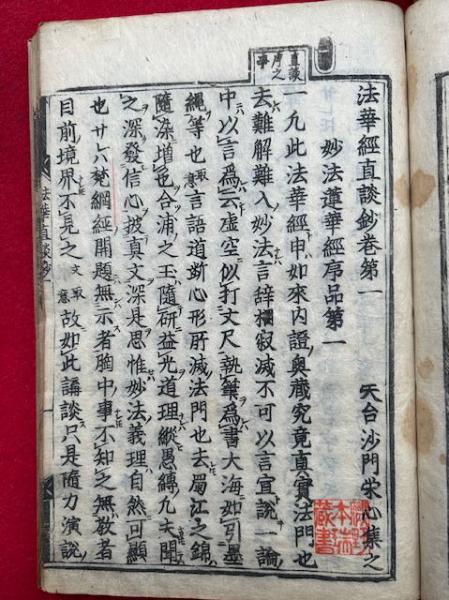 法華經直談鈔巻第一 天台沙門栄心集之
妙法蓮華經序品第一
直談
一
一凡此法華經申如來内證奥蔵究竟真實法門也
去難解難入妙法言辞相寂滅不可以言宣説一論
中以言為云虚空似打丈尺執筆為書大海如引墨
縄等也取意言語道断心形肝滅法門也去蜀江之錦
隨深増也合浦之玉隨研益光道理縦愚縛凡夫聞
之深發信心披真文深是思惟妙法義理自然可顕
也サレハ梵網經開題無示者胸中事不知之無敎者
目前境界不見之文取意故如此講談只是隨力演説
法華直談鈔一